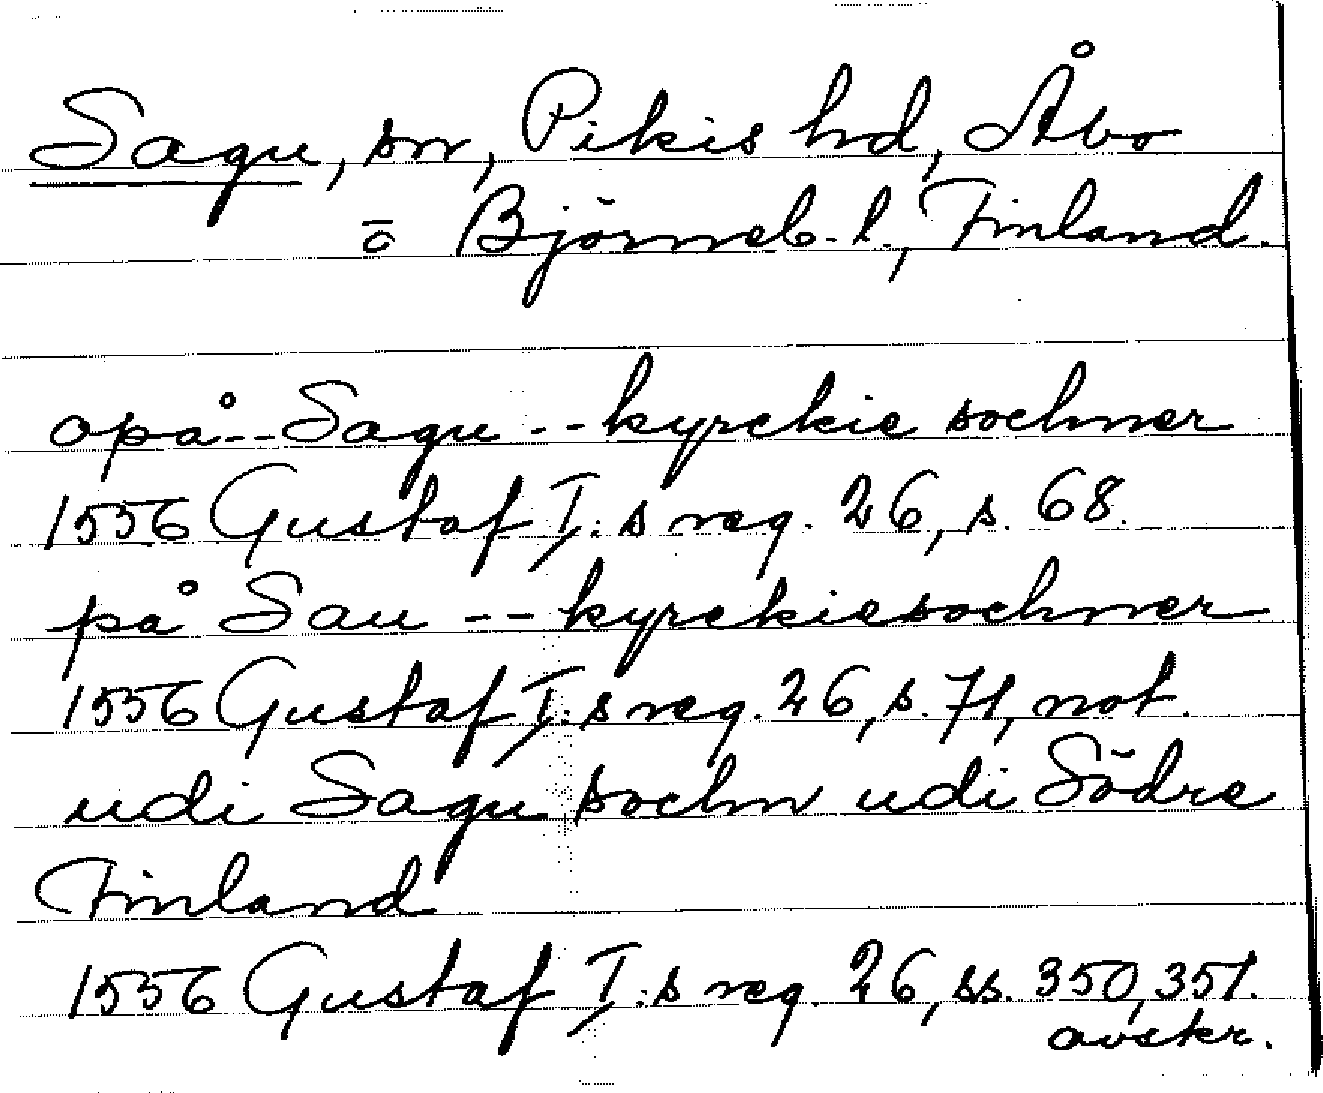 Sagu, sn, Pikis hd, Åbo
o Björneb. l., Finland.
opå -- Sagu -- kyrckie sochner
1556 Gustaf I:s reg. 26, s. 68.
på Sau -- kyrckiesochner
1556 Gustaf I:s reg. 26, s. 71, not.
udi Sagu sochn udi Södre
Finland
1556 Gustaf I:s reg. 26, ss. 350, 351.
avskr.